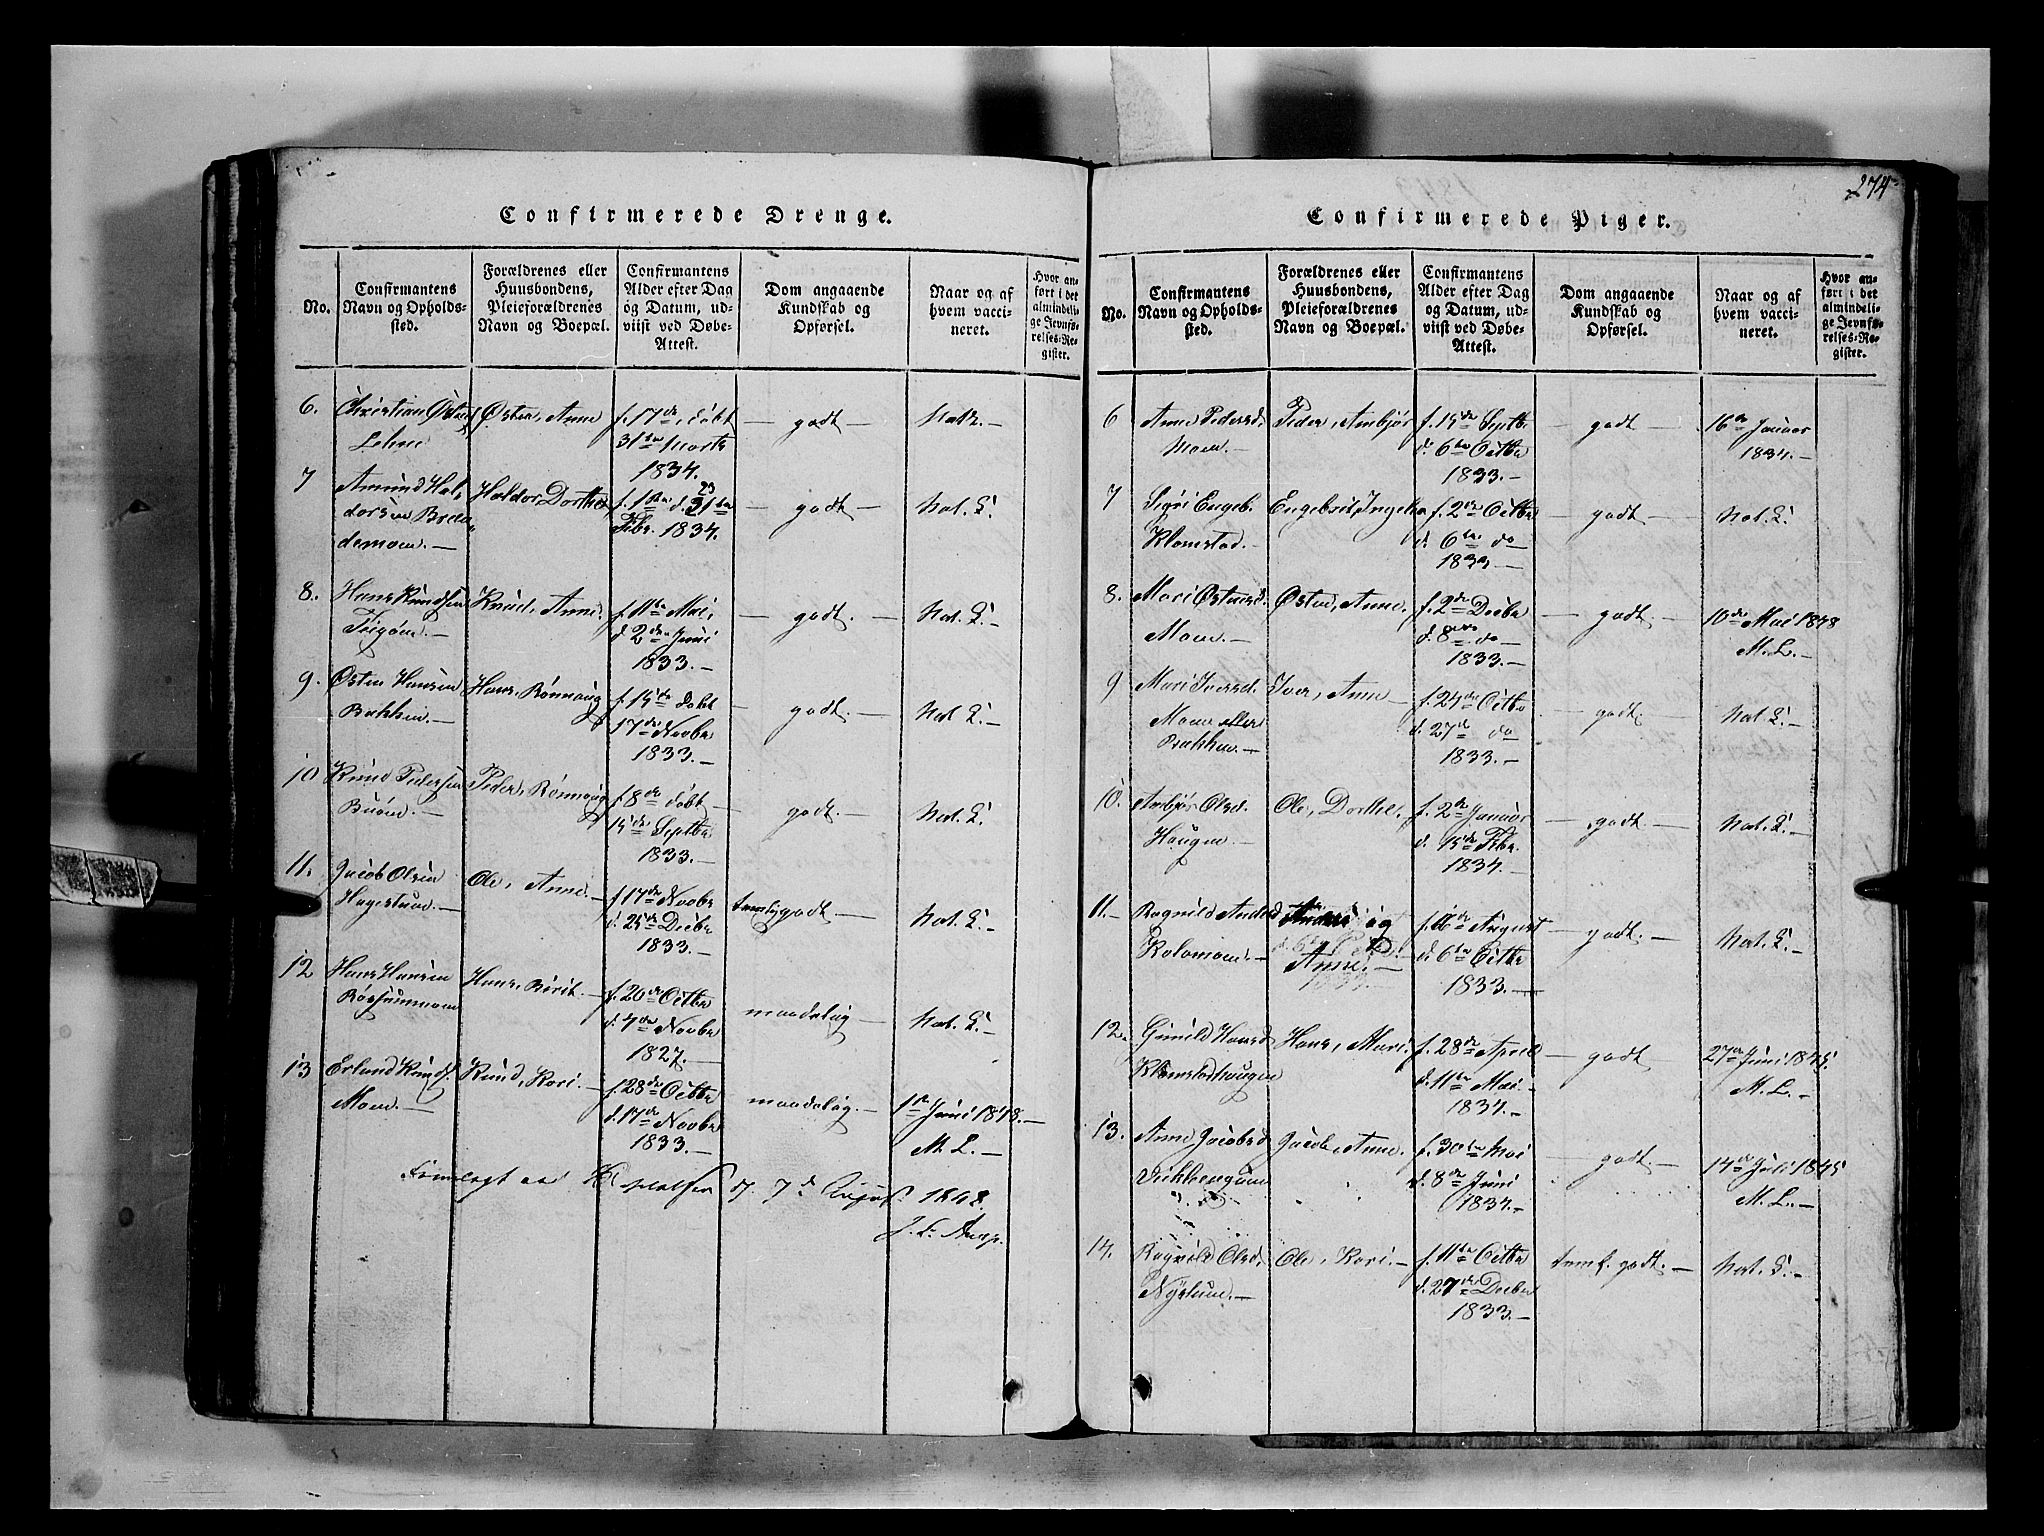 274
Confirmerede Drenge.
No.
Confirmantens
Navn og Opholds-
sted.
Forældrenes eller
Huusbondens,
Pleieforældrenes
Navn og Boepæl.
Confirmantens
Alder efter Dag
og Datum, ud-
viist ved Døbe-
Attest.
Dom angaaende
Kundskab og
Opførsel.
Naar og af
hvem vacci-
neret.
Hvor an-
ført i det
almindeli-
ge Jevnfø-
relses-Re-
gister.
6. Christian Østens.
Østen, Anne
f. 17de, døbt
31te Marts
1834.
— godt —
7
Amund Hal-
dorsen Brede-
demoen. —
Haldor, Dorthe,
f. 1ste d. 23
Febr. 1834.
— godt. —
Nat. K.
8. Hans Knudsen
Knud, Anne.
f. 11te Mai,
d. 2den Juni
1833. —
— godt. —
Nat. K. —
9. Østen Hansen
Bakken —
Hans, Rønnaug
f. 15de døbt
17de Novbr
1833. —
— godt. —
Nat. K. —
10 Knud Pedersen
Buøen. —
Peder, Rønnaug
f. 8de døbt —
15de Septbr
1833. —
— godt. —
Nat. K.
11. Jacob Olsen
Hagestuen. —
Ole, Anne. —
f. 17de Novbr
d. 25de Decbr
1833. —
temlig godt —
Nat. K. —
12 Hans Hansen
Hans, Berit. —
f. 20de Octbr
d. 4de Novbr
1827. —
maadelig —
Nat. K. —
13 Erland Knuds.
Moen. —
Knud, Kari. —
f. 28de Octbr
d. 17de Novbr
1833. —
maadelig. —
1ste Juni 1848. —
M. L. —
d. 7d August 1848.
Confirmerede Piger.
No.
Confirmantens
Navn og Opholds-
sted.
Forældrenes eller
Huusbondens,
Pleieforældrenes
Navn og Boepæl.
Confirmantens
Alder efter Dag
og Datum, ud-
viist ved Døbe-
Attest.
Dom angaaende
Kundskab og
Opførsel.
Naar og af
hvem vacci-
neret.
Hvor an-
ført i det
almindeli-
ge Jevnfø-
relses-Re-
gister.
6 Anne Pedersd.
Moen. —
Peder, Ambjør
f. 15de Septbr
d. 6te Octbr
1833. —
— godt —
16de Januar
1834. —
7 Sigri Engeb.
Klomstad. —
Engebret, Ingeb.
f. 2den Octbr
d. 6te do
1833 —
— godt —
Nat. K.
8. Mari Østensd.
Moen —
Østen, Anne.
f. 2den Decbr
d. 8de do
1833. —
— godt. —
10de Mai 1848
M. L. —
9 Mari Iversd.
Moen eller
Bakken —
Iver, Anne —
f. 24de Octbr
d. 27de do
1833. —
— godt. —
Nat. K. —
10. Ambjør Olsd.
Haugen. —
Ole, Dorthe.
f. 2den Januar
d. 15de Febr.
1834. —
— godt —
Nat. K. —
11. — Ragnild Andersd
Kolomoen. —
Anders og
Anne. —
f. 11te August
d. 6te Octbr
1833. —
— godt. —
Nat. K. —
12. Gunild Hansd
Klomstadhaugen
Hans, Mari.
f. 28de April
d. 11te Mai —
1834. —
— godt
27de Juni 1845.
M. L. —
13. Anne Jacobsd
Jacob, Anne.
f. 30te Mai
d. 8de Juni
1834. —
— godt —
14de Juli 1845
M. L. —
14. Ragnild Olsd.
Nystuen. —
Ole, Kari. —
f. 11te Octbr
d. 27de Decbr
1833. —
teml. godt. —
Nat. K. —